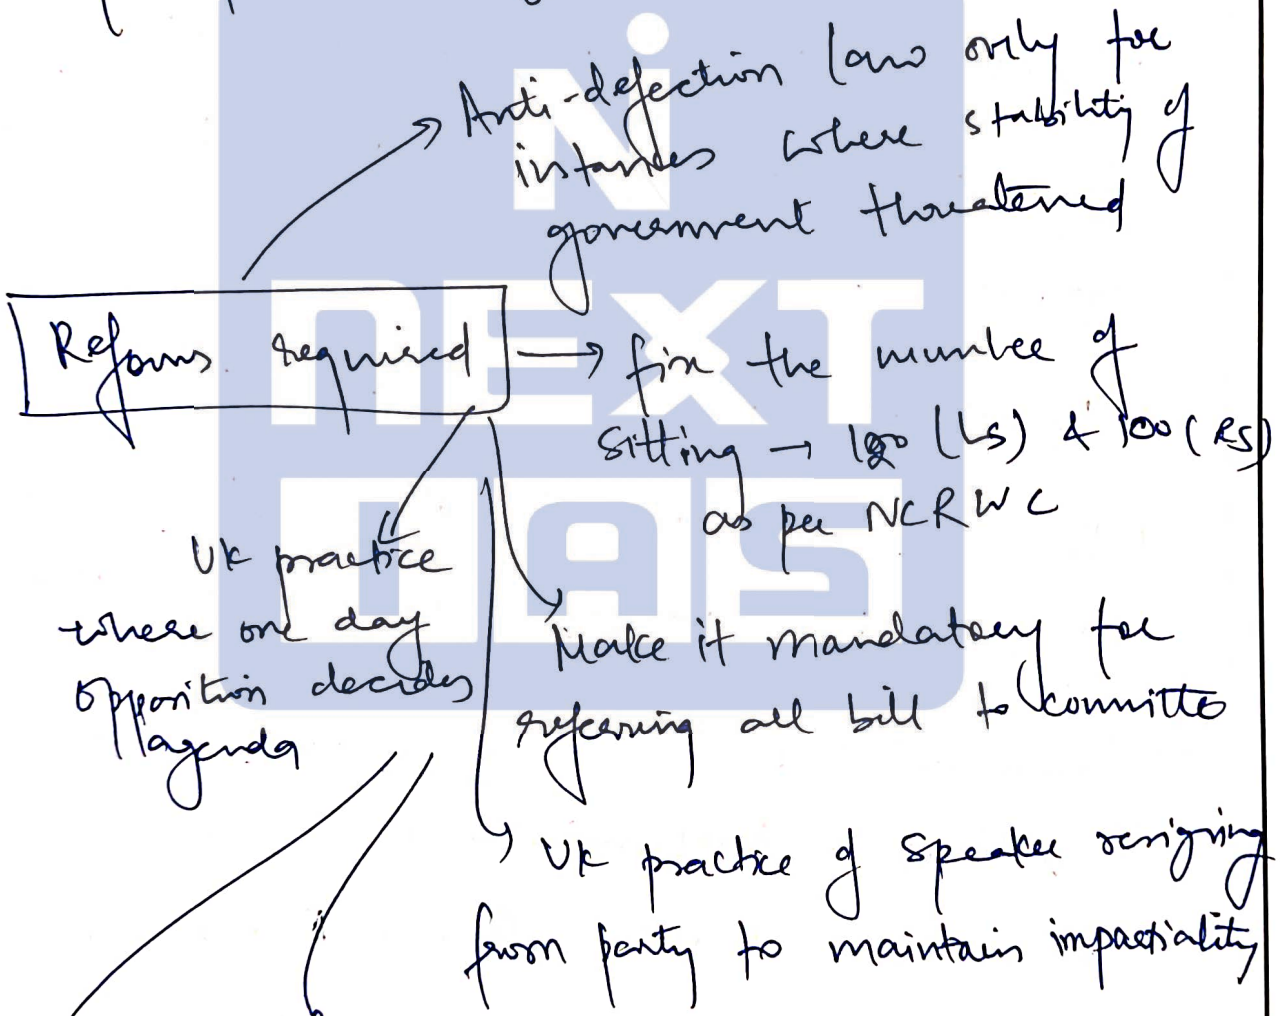 Anti-defection law only for
instances where stability of
government threatened
Reforms required
fix the number of
sitting → 120 (LS) & 100 (RS)
as per NCRWC
UK practice
where one day
opposition decides
agenda
Make it mandatory for
referring all bill to committe
UK practice of Speaker resigning
from party to maintain impartiality
NEXT
IAS